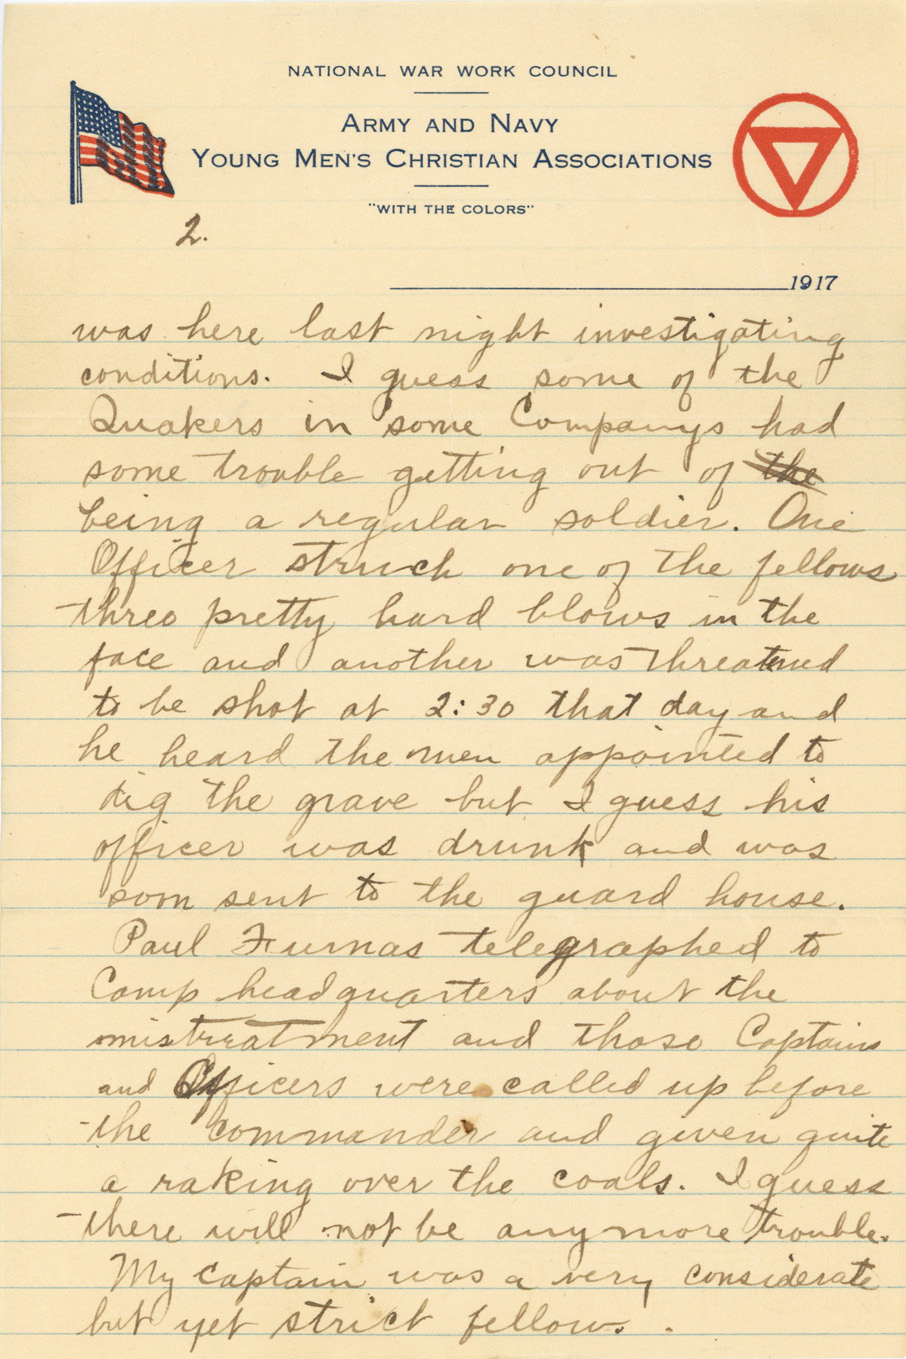 NATIONAL WAR WORK COUNCIL
ARMY AND NAVY
YOUNG MEN'S CHRISTIAN ASSOCIATIONS
"WITH THE COLORS"
2.
1917
was here last night investigating
conditions. I guess some of the
Quakers in some Companys had
some trouble getting out of the
being a regular soldier. One
Officer struck one of the fellows
three pretty hard blows in the
face and another was threatened
to be shot at 2:30 that day and
he heard the men appointed to
dig the grave but I guess his
officer was drunk and was
soon sent to the guard house.
Paul Furnas telegraphed to
Camp headquarters about the
mistreatment and those Captains
and Officers were called up before
the commander and given quite
a raking over the coals. I guess
there will not be any more trouble.
My captain was a very considerate
but yet strict fellow.